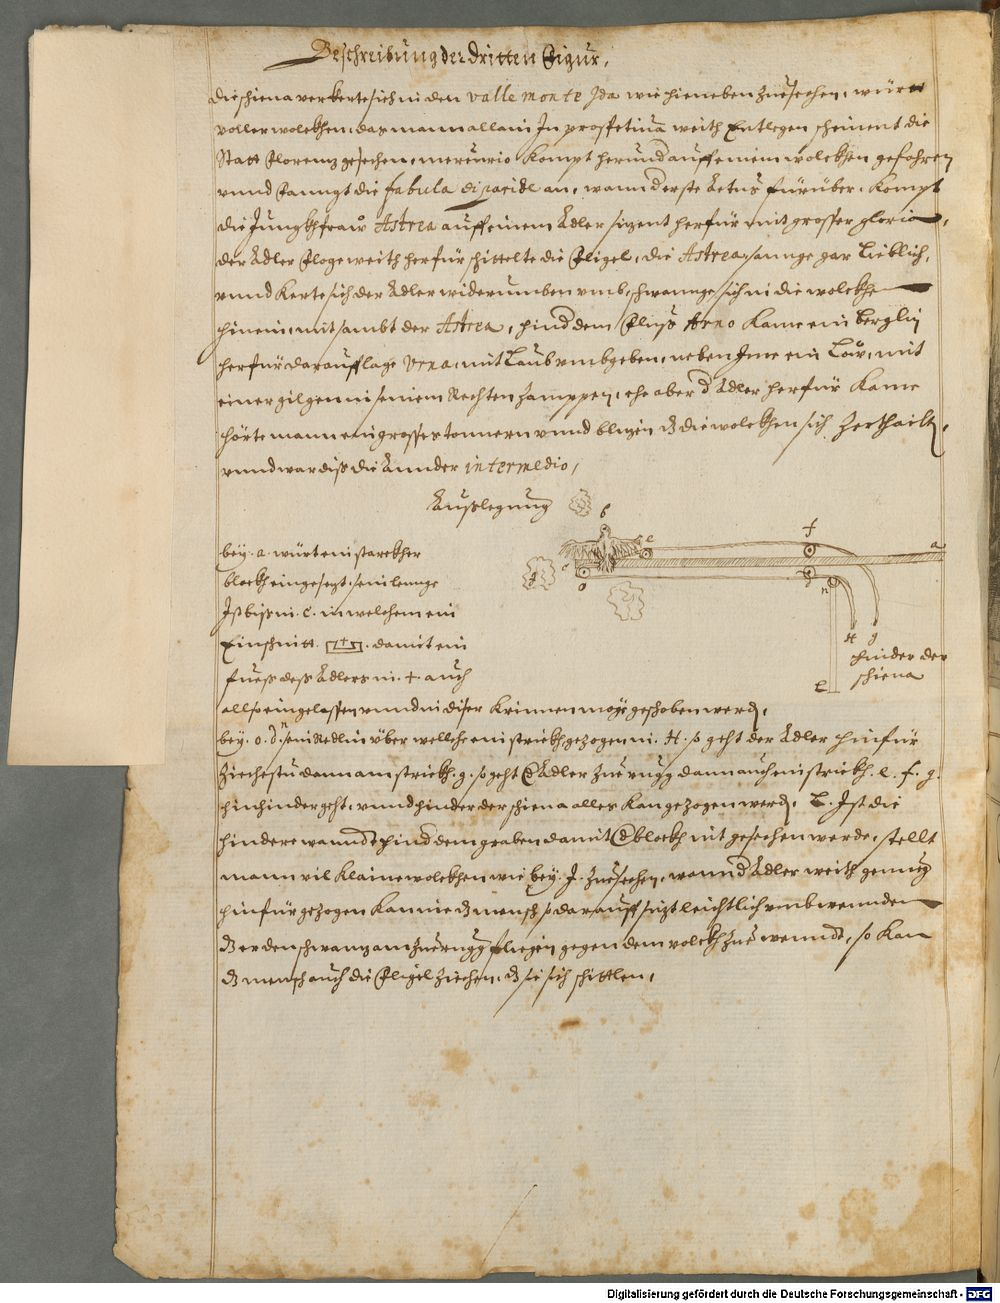 Beschreibung der dritten Figur,
Die schiena verkerte sich in den valle monte Ida wie hieneben zue sechen, würt
voller wolckhen, das mann allain In prospetiua weith Entlegen scheinent die
Statt Florenz gesechen, mercurio kompt herund auff einem wolckhen gefahren
vnnd fanngt die fabula di paride an, wann der erste Actus fürüber, kompt
die Jungkhfraw Astrea auff einem Adler sizent herfür mit grosser gloria,
der Adler floge weith herfür schittelte die fligel, die Astrea sannge gar lieblich,
vnnd kerte sich der Adler widerumben vmb, schwannge sich in die wolckhen
hinein, mit sambt der Astrea, hind dem fluß Arno kame ein berglin
herfür darauff lage Vrna, mit Laub vmbgeben, neben Ime ein Löw, mit
einer gilgen in seinem Rechten zamppen, ehe aber d Adler herfür kame
hörte mann ein grosses tonnern vnnd blizen dz die wolckhen sich zerthailt,
vnnd war diß die Annder intermedio,
Außlegung
b
e
f
a
c
o
n
H g
hinder der
schiena
L
bey .a. würt ein starckher
blockh eingesezt, sein lennge
Ist biß in .c. in welchem ein
Einschnitt + damit ein
fueß deß Adlers in + auch
also eingelassen vnnd in diser krinnen möge geschoben werd,
bey .o. d sein Redlin über wellche ein strickh gezogen in .H. so geht der Adler hinfür
Ziechestu dann am strickh .g. so geht d Adler zue rugg dann auch ein strickh .e. f. g.
hinhinder geht, vnnd hinder der schiena alles kan gezogen werd, L. Ist die
hindere wanndt hind dem graben damit d blockh nit gesechen werde, stellt
mann vil klaine wolckhen wie bey .I. zue sechen, wann d Adler weith genueg
hinfür gezogen kann ie dz mensch so darauff sizt leichtlich vmbwennden
dz er den schwanz am zuerugg fliegen gegen dem volckh zue wenndt, so kan
dz mensch auch die fligel ziechen, dz sie sich schittlen,
Digitalisierung gefördert durch die Deutsche Forschungsgemeinschaft - DFG